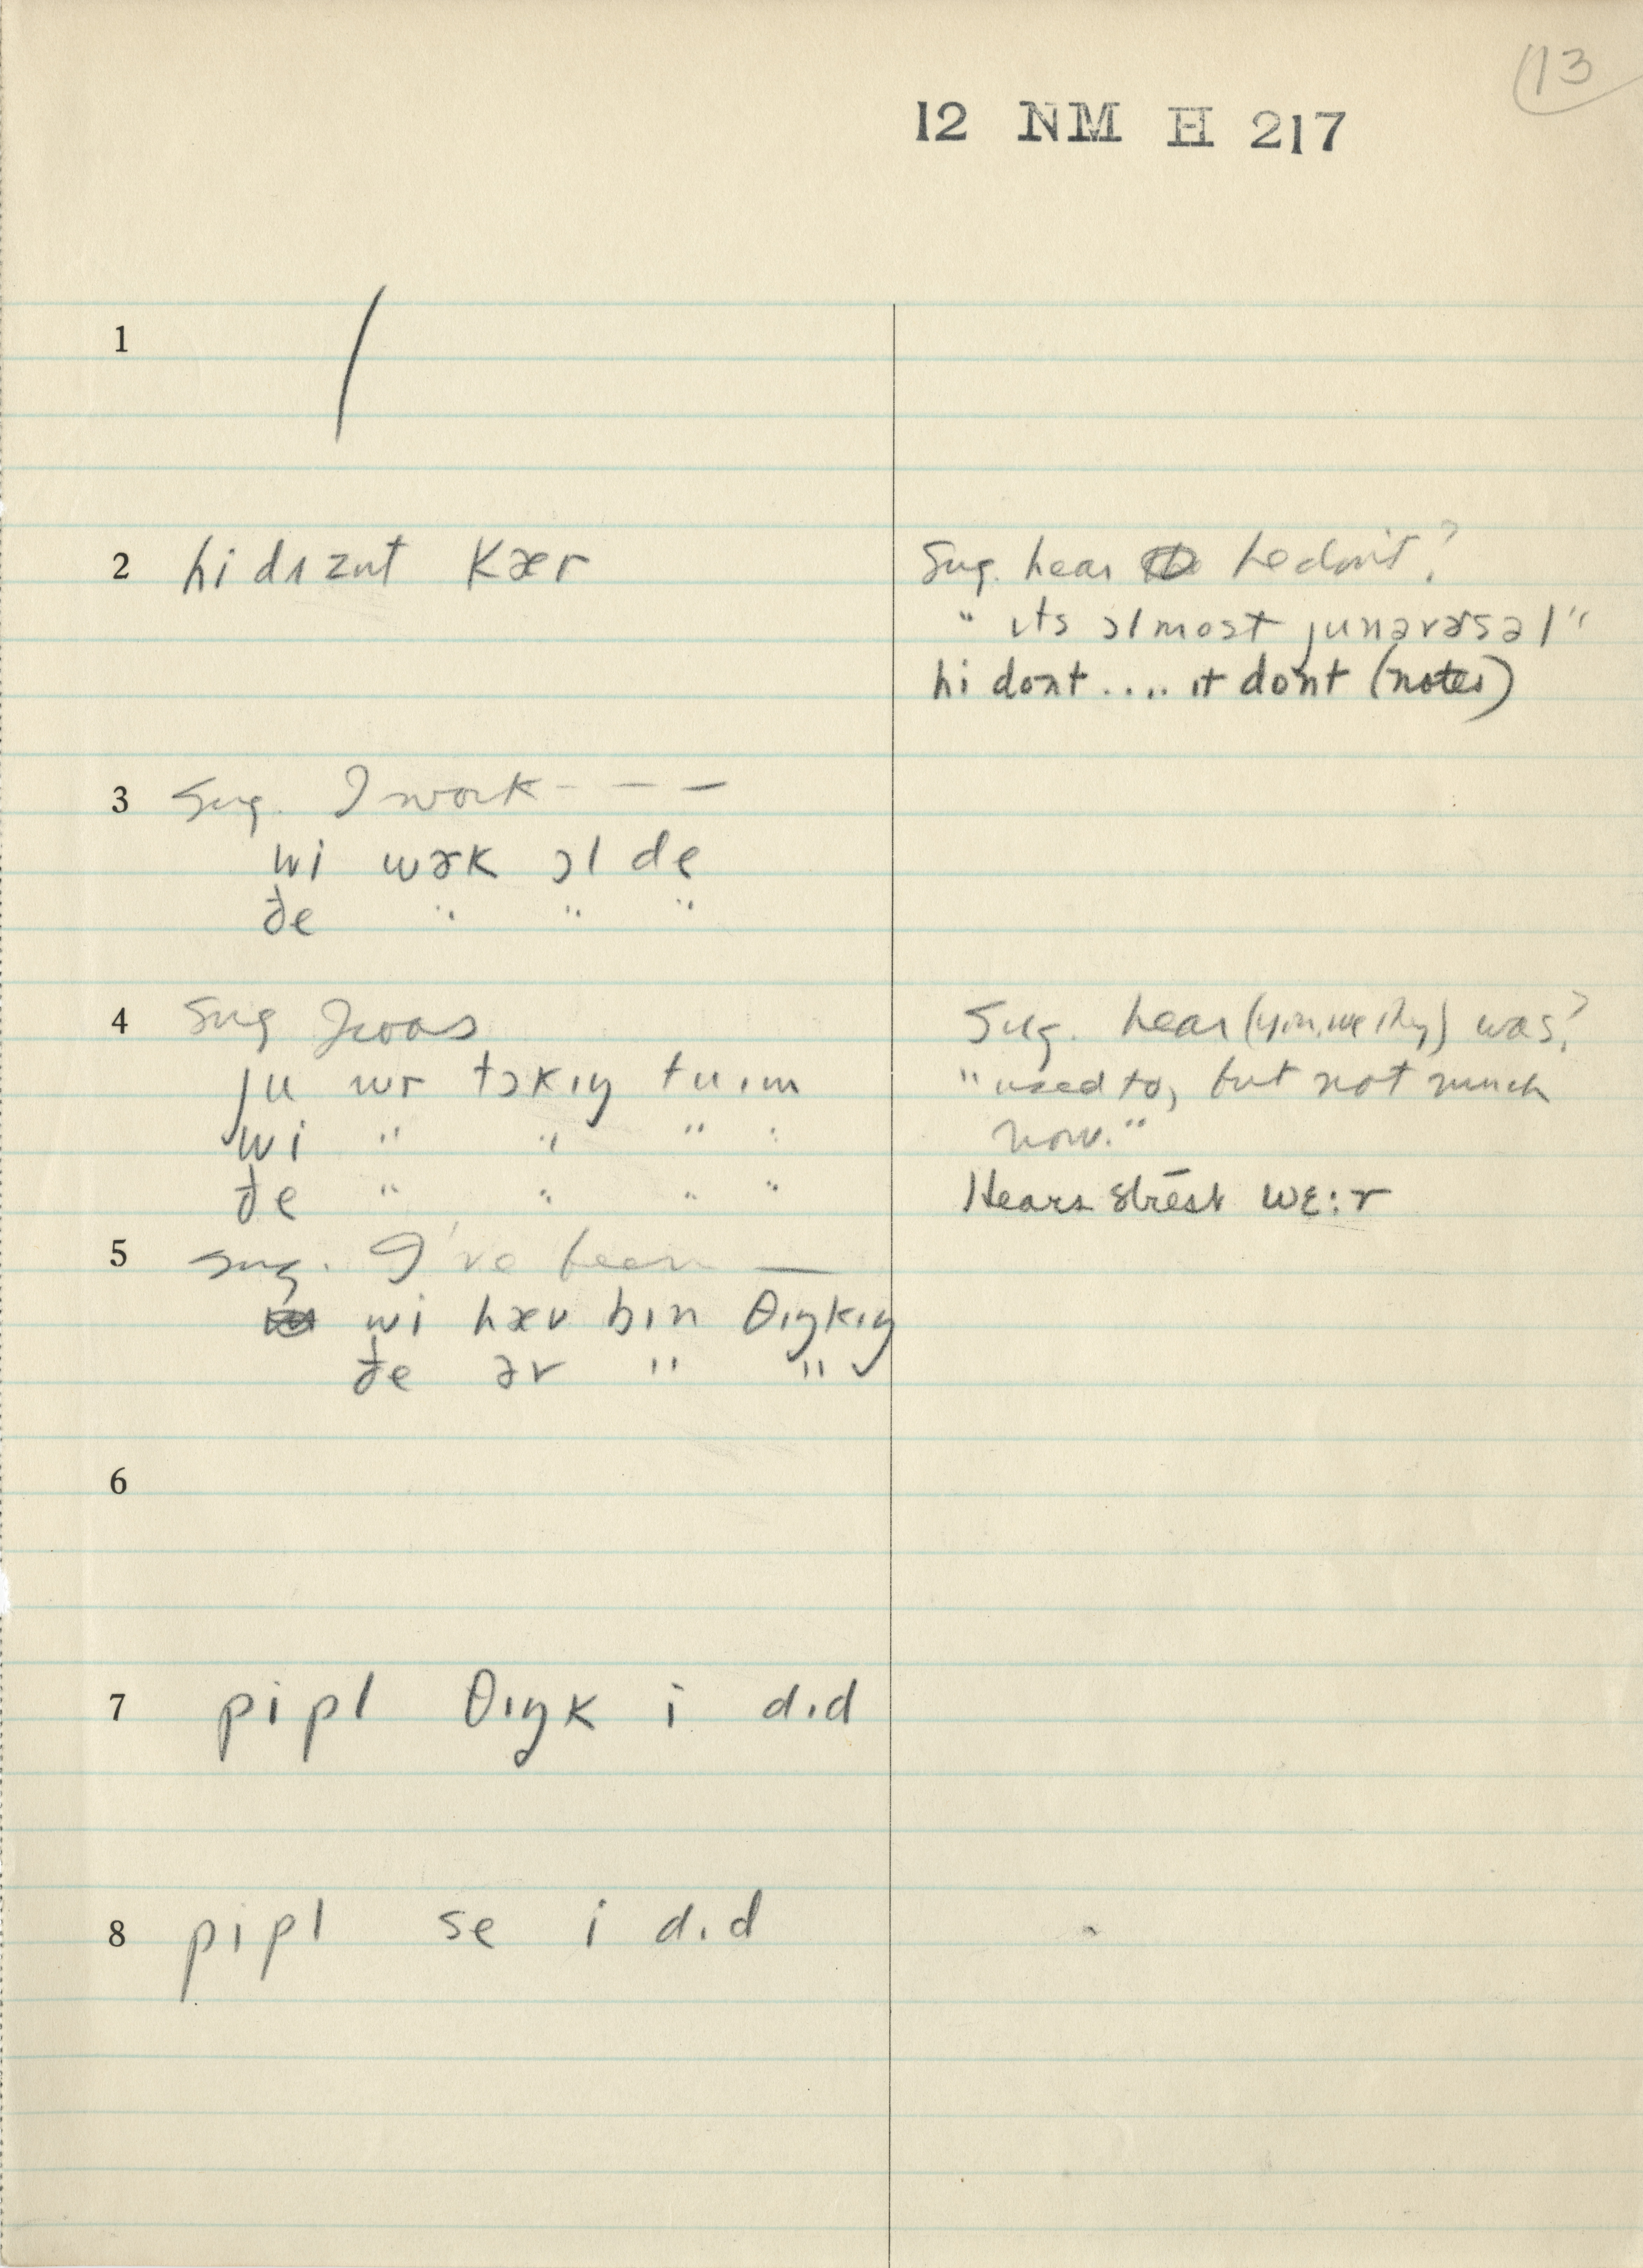 13
12 NM H 217
1 /
2 hi dʌznt kær
Sug. hear he don't?
" ɪts ɔlmost junəvɚsəl"
hi dont .... ɪt dont (notes)
3 Sug. I work - - -
wi wɚk ɔl de
ðe " " "
4 Sug I was
ju wr tɔkɪŋ tu ɪm
wi " " " "
ðe " " " "
Sug. hear (you, we, they) was?
"used to, but not much
now."
Hears strēst wɛ:r
5 Sug. I've been —
wi hæv bɪn θɪŋkɪŋ
ðe ər " "
6
7 pipl θɪŋk i dɪd
8 pipl se i dɪd